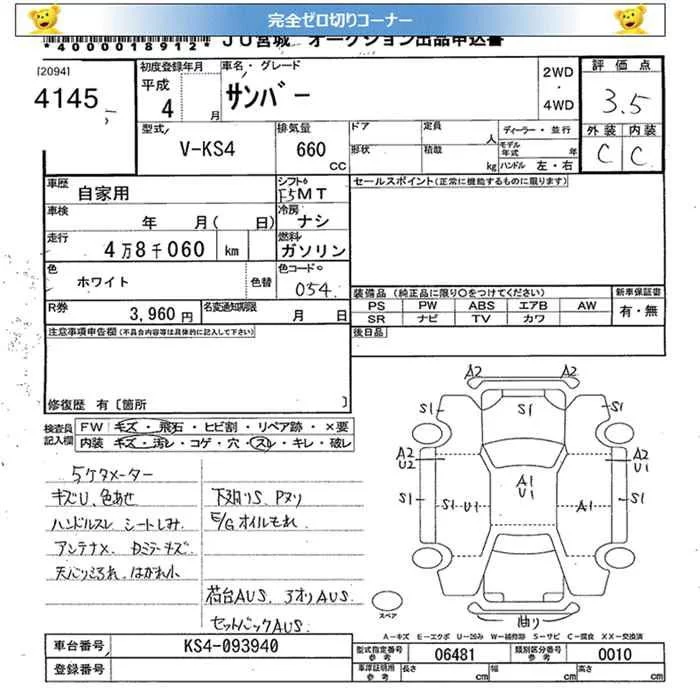 完全ゼロ切りコーナー
*4000018912* JU宮城 オークション出品申込書
[2094]
4145
初度登録年月
平成
4 月
車名・グレード
サンバー
2WD
・
4WD
評価点
3.5
外装 内装
C C
型式
V-KS4
排気量
660
CC
ドア
形状
定員
人
積載
kg
ディーラー・並行
モデル年式 年
ハンドル 左・右
車歴
自家用
シフト
F5MT
セールスポイント(正常に機能するものに限ります)
車検
年 月( 日)
冷房
ナシ
走行
4万8千060 km
燃料
ガソリン
色
ホワイト
色替
色コード
054
R券
3,960円
名変通知期限
月 日
装備品 (純正品に限り○をつけてください)
PS PW ABS エアB AW
SR ナビ TV カワ
新車保証書
有・無
後日品
注意事項申告欄(不具合内容等は具体的に記入して下さい)
修復歴 有 [箇所 ]
検査員記入欄
FW キズ・飛石・ヒビ割・リペア跡・×要
内装 キズ・汚レ・コゲ・穴・スレ・キレ・破レ
5ケタメーター
キズU、色あせ
ハンドルスレ シートしみ、
アンテナX、
下廻りS、Pヌリ
E/Gオイルもれ
荷台AUS、3オリAUS、
セットバックAUS、
A2 A2
S1 S1 S1
A2
U2
A2
U1
A1
U1
S1 U1 A1 S1
スペア
A−キズ E−エクボ U−凹み W−補修跡 S−サビ C−腐食 XX−交換済
車台番号
KS4-093940
登録番号
型式指定番号
参考
06481
類別区分番号
参考
0010
車庫証明用
参考
長さ cm 幅 cm 高さ cm